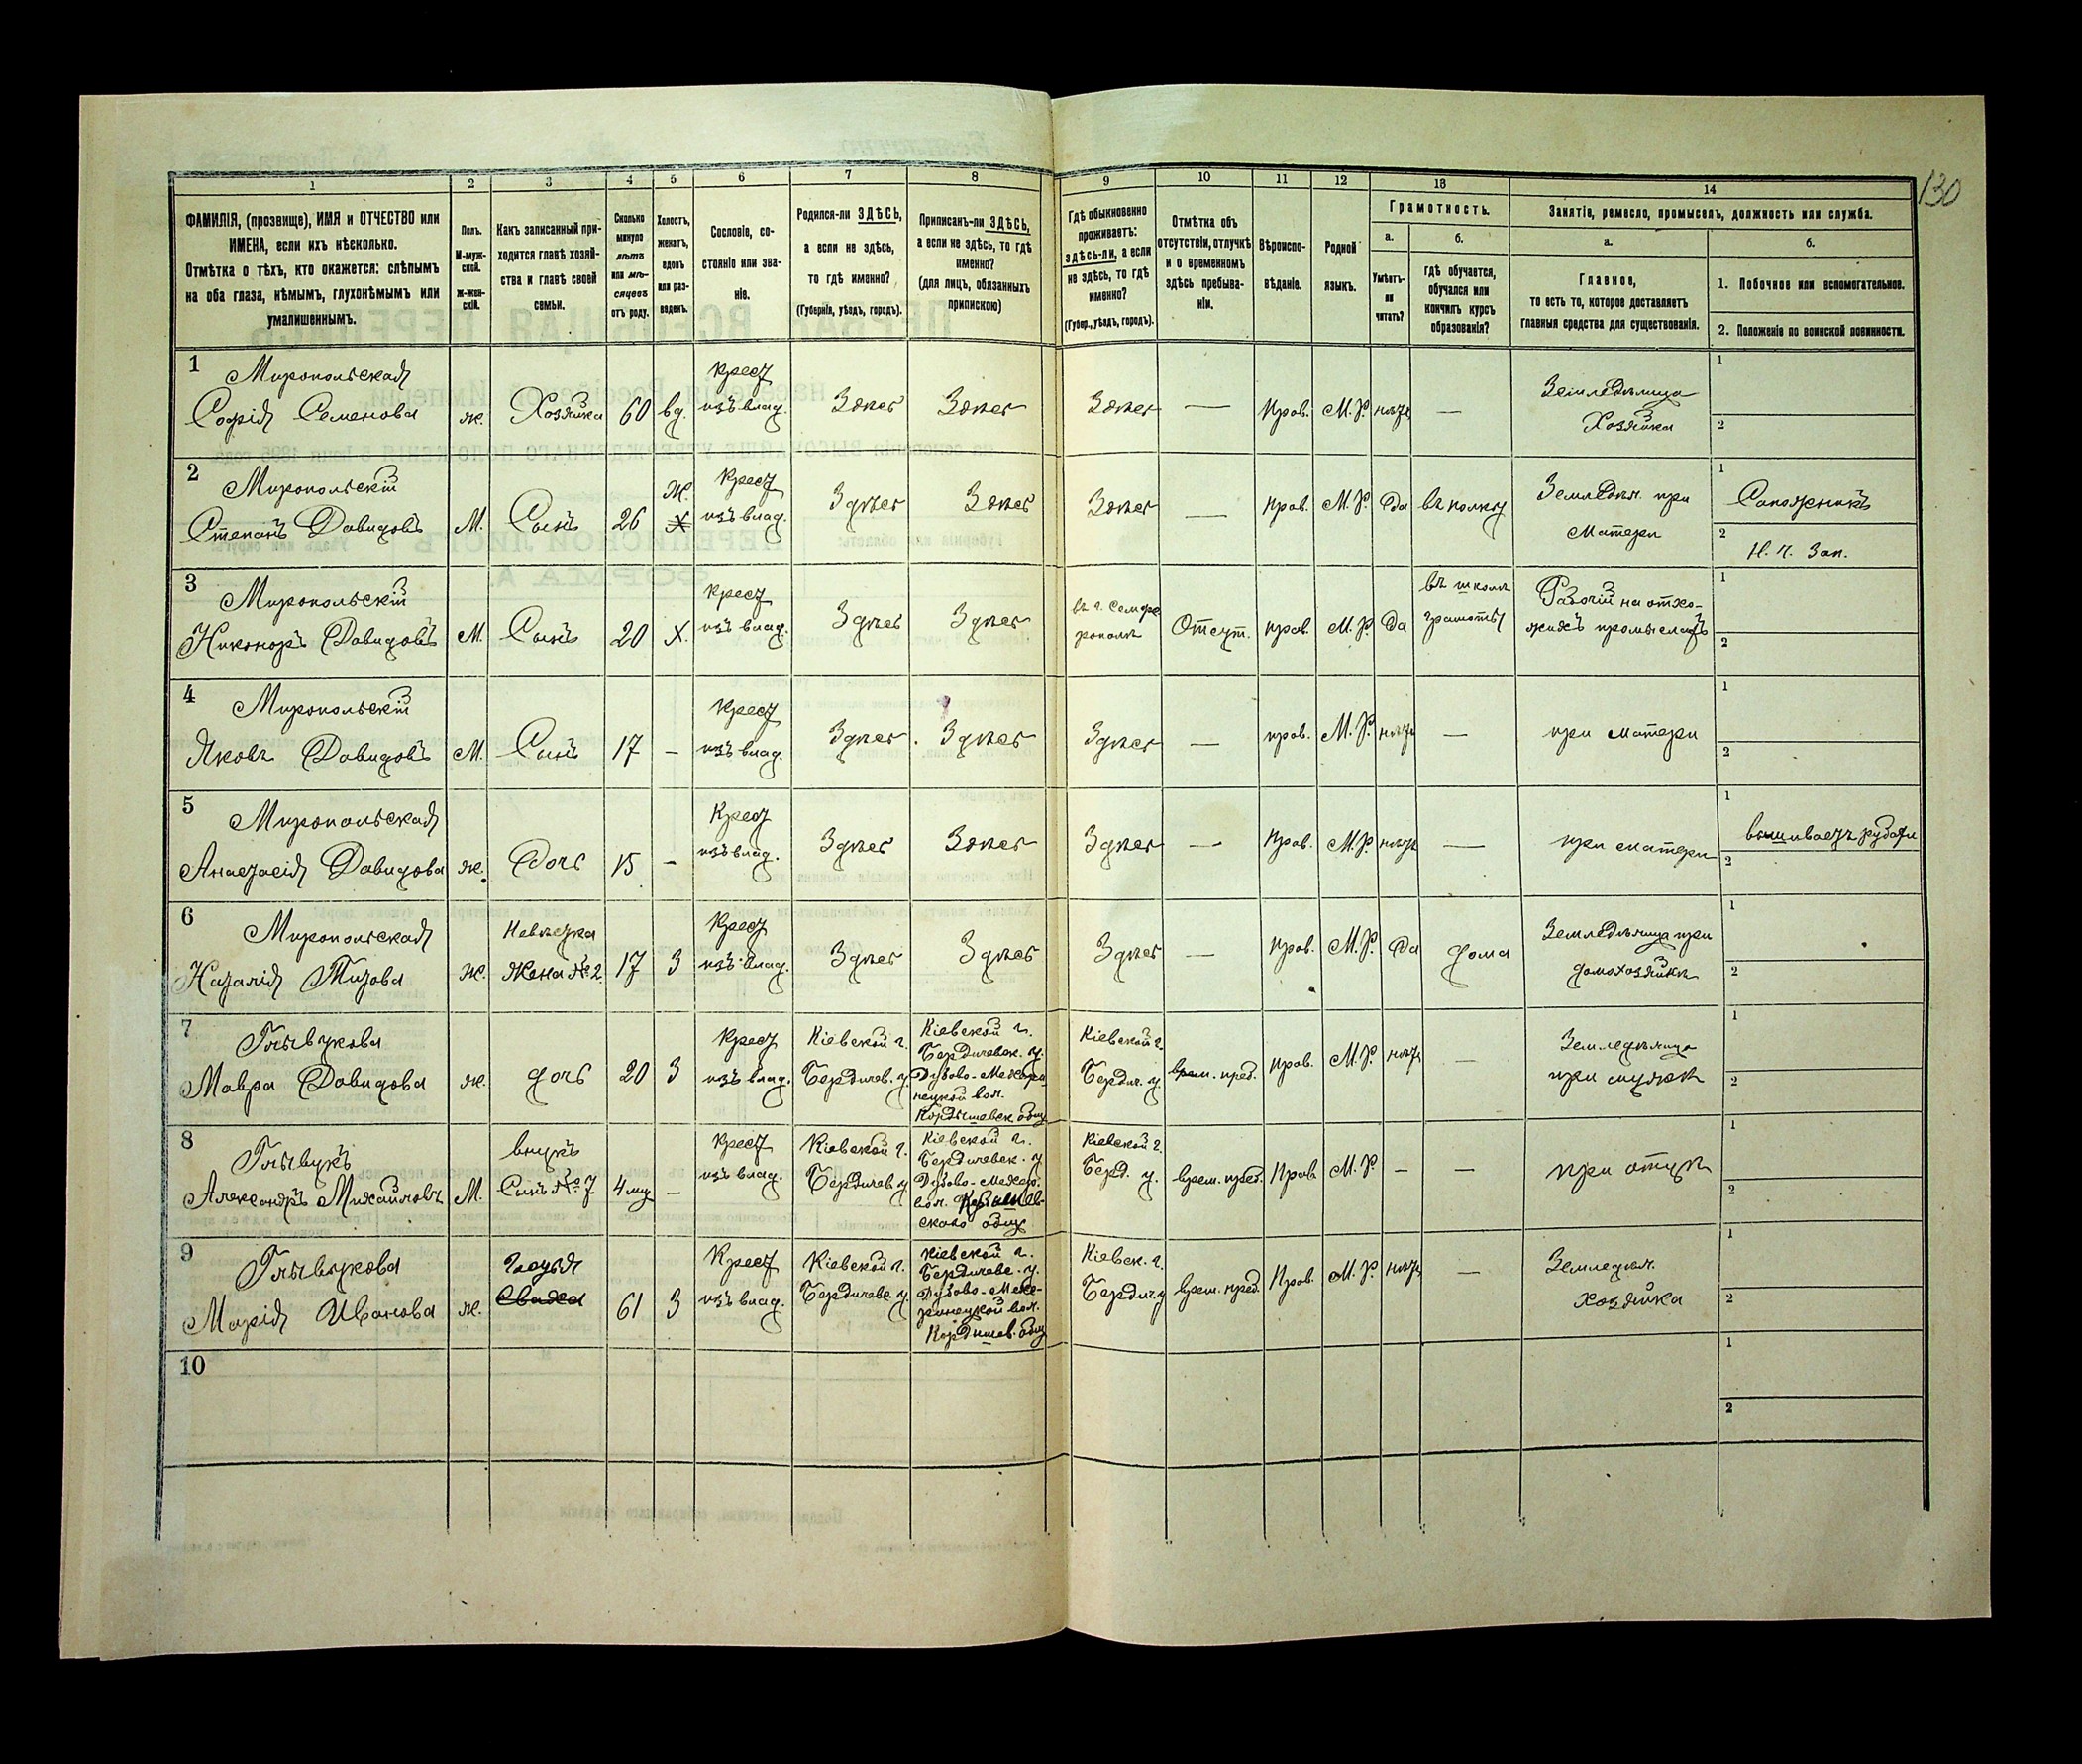 130
1 2 3 4 5 6 7 8 9 10 11 12 13 14
ФАМИЛІЯ, (прозвище), ИМЯ и ОТЧЕСТВО или
ИМЕНА, если ихъ нѣсколько.
Отмѣтка о тѣхъ, кто окажется: слѣпымъ
на оба глаза, нѣмымъ, глухонѣмымъ или
умалишеннымъ.
Полъ.
М-муж-
ской.
Ж-жен-
скій.
Какъ записанный при-
ходится главѣ хозяй-
ства и главѣ своей
семьи.
Сколько
минуло
лѣтъ
или мѣ-
сяцевъ
отъ роду.
Холостъ,
женатъ,
вдовъ
или раз-
веденъ.
Сословіе, со-
стояніе или зва-
ніе.
Родился-ли ЗДѢСЬ,
а если не здѣсь,
то гдѣ именно?
(Губернія, уѣздъ, городъ).
Приписанъ-ли ЗДѢСЬ,
а если не здѣсь, то гдѣ
именно?
(для лицъ, обязанныхъ
припискою)
Гдѣ обыкновенно
проживаетъ:
здѣсь-ли, а если
не здѣсь, то гдѣ
именно?
(Губер., уѣздъ, городъ).
Отмѣтка объ
отсутствіи, отлучкѣ
и о временномъ
здѣсь пребыва-
ніи.
Вѣроиспо-
вѣданіе.
Родной
языкъ.
Грамотность.
а.
Умѣетъ-
ли
читать?
б.
Гдѣ обучается,
обучался или
кончилъ курсъ
образованія?
Занятіе, ремесло, промыселъ, должность или служба.
а.
Главное,
то есть то, которое доставляетъ
главныя средства для существованія.
б.
1. Побочное или вспомогательное.
2. Положеніе по воинской повинности.
1
Миропольская
Софія Семенова
ж.
Хозяйка
60
вд.
Крест
изъ влад.
Здѣсь
Здѣсь
Здѣсь
—
прав.
М.Р.
нѣтъ
—
Земледѣлица
Хозяйка
1
2
2
Миропольскій
Степанъ Давидовъ
М.
Сынъ
26
Ж.
Х
Крест
изъ влад.
Здѣсь
Здѣсь
Здѣсь
—
прав.
М.Р.
Да
въ полку
Земледѣл. при
Матери
1
Сапожникъ
2
Н. Ч. Зап.
3
Миропольскій
Никоноръ Давидовъ
М.
Сынъ
20
Х.
Крест
изъ влад.
Здѣсь
Здѣсь
въ г. Симфе
рополѣ
Отсут.
прав.
М.Р.
Да
въ школѣ
грамоты
Рабочій на отхо-
жихъ промыслахъ
1
2
4
Миропольскій
Яковъ Давидовъ
М.
Сынъ
17
—
Крест
изъ влад.
Здѣсь
Здѣсь
Здѣсь
—
прав.
М.Р.
нѣтъ
—
при матери
1
2
5
Миропольская
Анастасія Давидова
ж.
Дочь
15
—
Крест
изъ влад.
Здѣсь
Здѣсь
Здѣсь
—
прав.
М.Р.
нѣтъ
—
при матери
1
вышиваетъ рубахи
2
6
Миропольская
Наталія Титова
ж.
Невѣстка
Жена № 2
17
З
Крест
изъ влад.
Здѣсь
Здѣсь
Здѣсь
—
прав.
М.Р.
Да
дома
Земледѣлица при
домохозяйкѣ
1
2
7
Мавра Давидова
ж.
дочь
20
З
Крест
изъ влад.
Кіевской г.
Бердичев. у.
Кіевской г.
Бердичевск. у.
Дубово-Махари
нецкой вол.
Кордышевск общ
Кіевской г.
Бердич. у.
врем. преб.
прав.
М.Р.
нѣтъ
—
Земледѣлица
при мужѣ
1
2
8
Александръ Михайловъ
М.
внукъ
Сынъ № 7
4 мц
—
Крест
изъ влад.
Кіевской г.
Бердичев. у
Кіевской г.
Бердичевск. у
Дубово-Махар.
вол. Кордышев-
скаго общ
Кіевской г.
Берд. у.
врем. преб.
Прав
М.Р.
—
—
при отцѣ
1
2
9
Марія Иванова
ж.
Сваха
61
З
Крест
изъ влад.
Кіевской г.
Бердичевс. у.
Кіевской г.
Бердичевс. у.
Дубово-Маха-
ринецкой вол.
Кордышев. общ
Кіевск. г.
Бердич. у
врем. преб.
Прав.
М.Р.
нѣтъ
—
Земледѣл.
хозяйка
1
2
10
1
2